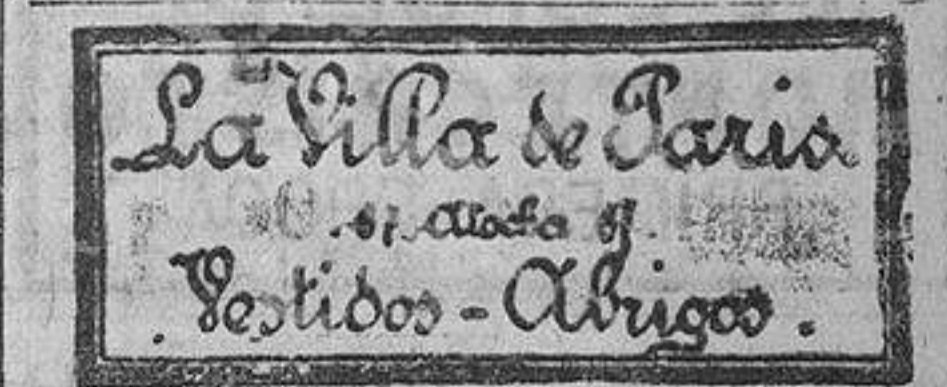 La Villa de Paris
Atocha
Vestidos - Abrigos.